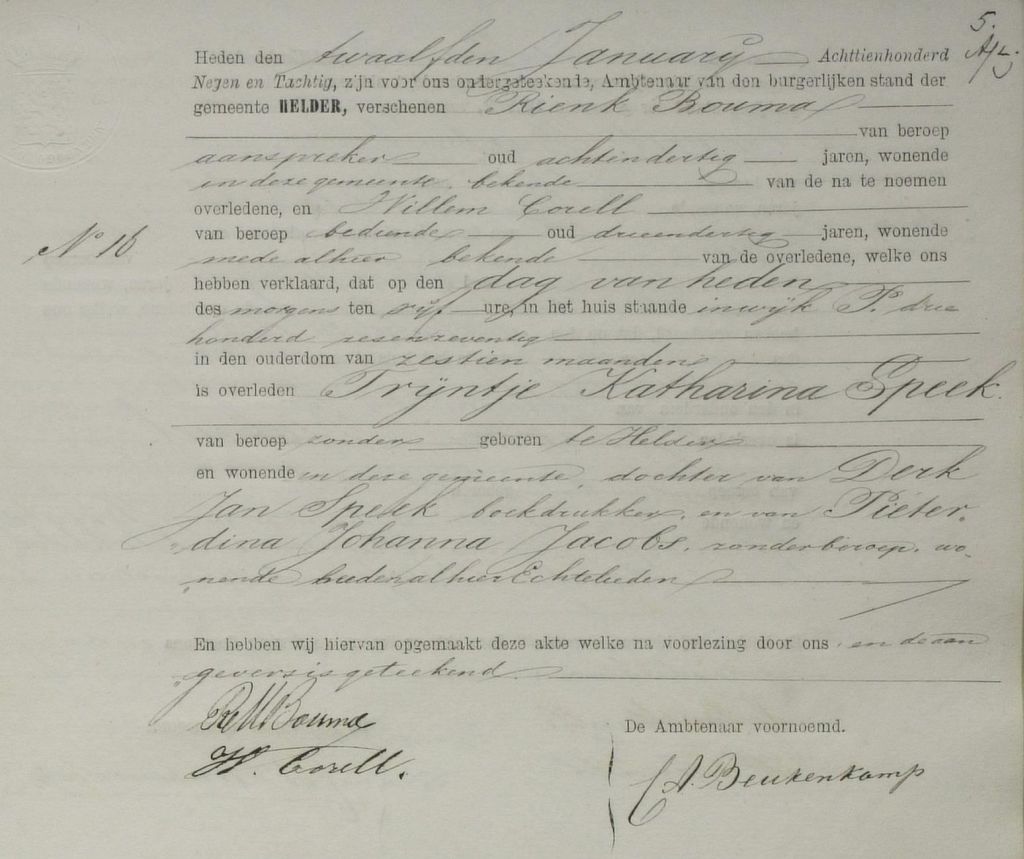 5.
Heden den twaalfden January Achttienhonderd
Negen en Tachtig, zijn voor ons ondergeteekende, Ambtenaar van den burgerlijken stand der
gemeente HELDER, verschenen Rienk Bouma
van beroep
aanspreker oud achtendertig jaren, wonende
in deze gemeente, bekende van de na te noemen
overledene, en Willem Corell
No 16
van beroep bediende oud drieendertig jaren, wonende
mede alhier bekende van de overledene, welke ons
hebben verklaard, dat op den dag van heden
des morgens ten vijf ure, in het huis staande in wijk P. drie
honderd zesenzeventig
in den ouderdom van zestien maanden
is overleden Trijntje Katharina Speek.
van beroep zonder geboren te Helder
en wonende in deze gemeente, dochter van Derk
Jan Speek boekdrukker, en van Pieter-
dina Johanna Jacobs, zonder beroep, wo-
nende beiden alhier Echtelieden
En hebben wij hiervan opgemaakt deze akte welke na voorlezing door ons en de aan
gevers is geteekend.
Bouma
De Ambtenaar voornoemd.
W. Corell.
Beukenkamp